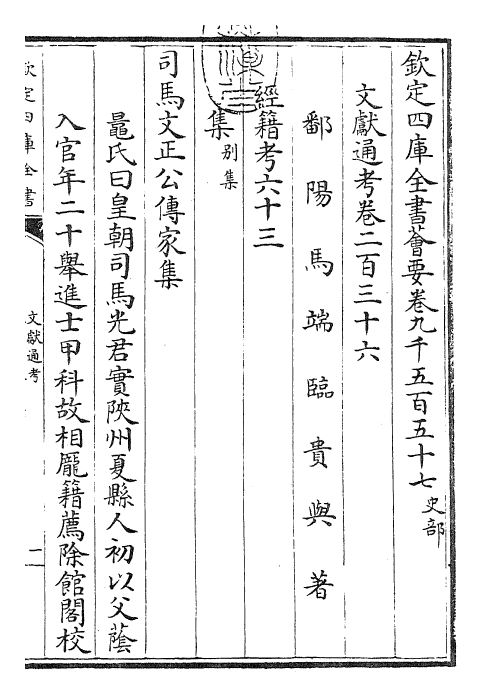 欽定四庫全書薈要卷九千五百五十七史部
文獻通考卷二百三十六
鄱陽馬端臨貴與著
經籍考六十三
集別集
司馬文正公傳家集
鼂氏曰皇朝司馬光君實陜州夏縣人初以父蔭
入官年二十舉進士甲科故相龎籍薦除館閣校
欽定四庫全書
文獻通考
一